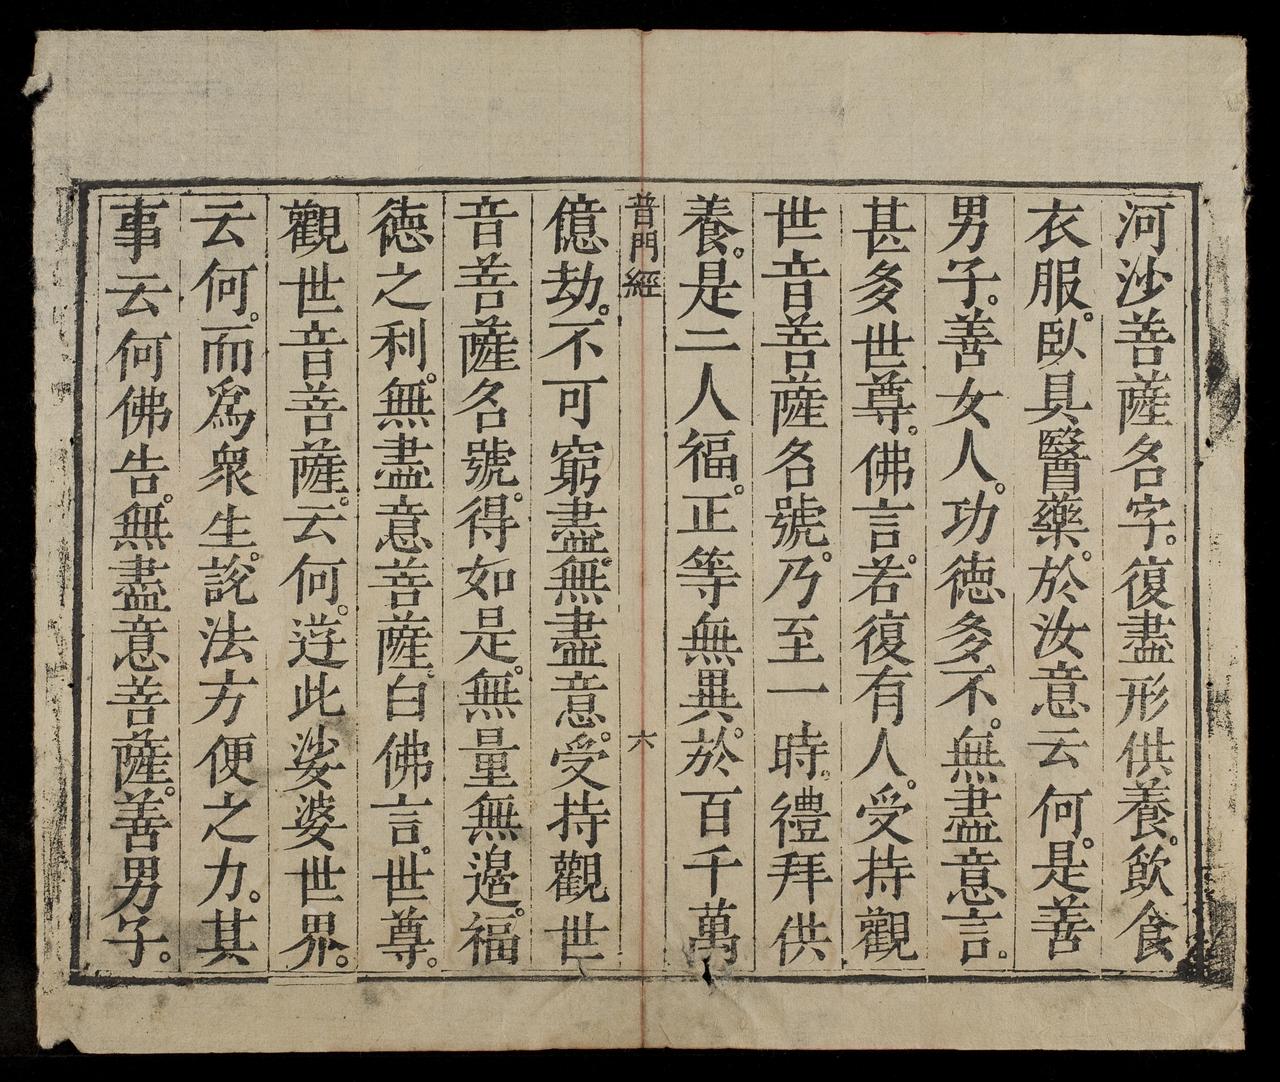 河沙菩薩名字。復盡形供養。飲食
衣服。臥具醫藥。於汝意云何。是善
男子。善女人。功德多不。無盡意言。
甚多世尊。佛言。若復有人。受持觀
世音菩薩名號。乃至一時。禮拜供
養。是二人福。正等無異。於百千萬
普門經 六
億劫。不可窮盡。無盡意。受持觀世
音菩薩名號。得如是。無量無邊。福
德之利。無盡意菩薩。白佛言。世尊。
觀世音菩薩。云何。遊此娑婆世界。
云何。而爲衆生。說法方便之力。其
事云何佛告。無盡意菩薩。善男子。